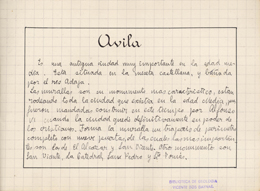 Avila
Es una antigua ciudad muy importante en la edad me-
dia. Esta situada en la meseta castellana, y bañada
por el rio Adaja.
Las murallas son su monumento mas caracteristico, estan
rodeando toda la ciudad que existia en la edad media, y
fueron mandadas construir en este tiempo por Alfonso
VI cuando la ciudad quedó definitivamente en poder de
los cristianos. Forma la muralla un
completo con nueve puertas de las cuales las mas importan-
tes son las de el Alcazar y San Vicente. Otros monumentos son
San Vicente, la Catedral, San Pedro y Sto Tomás.